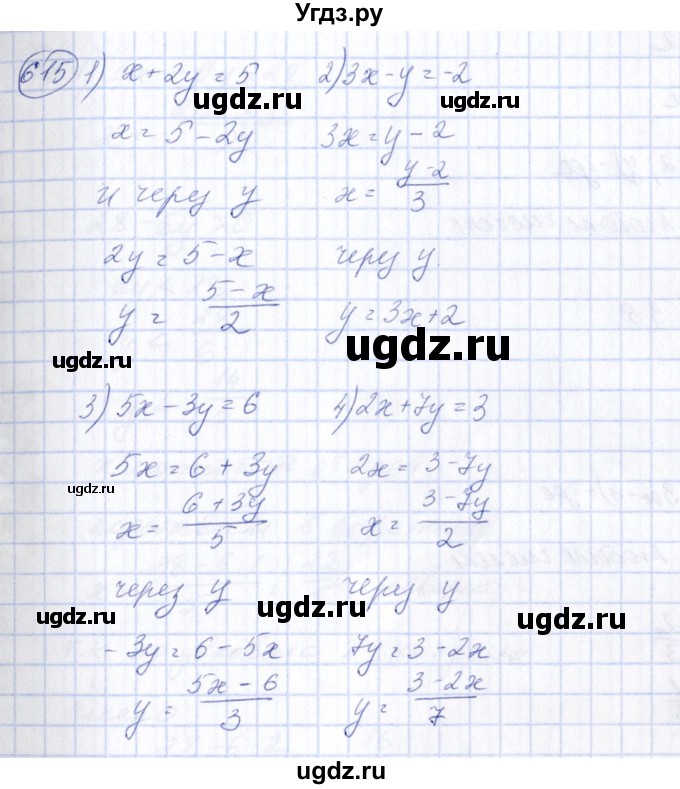 Угдз.ру
615 1) x + 2y = 5
x = 5 - 2y
и через y
2y = 5 - x
y = (5 - x)/2
2) 3x - y = -2
3x = y - 2
x = (y - 2)/3
через y.
y = 3x + 2
ugdz.ru
ugdz.ru
ugdz.ru
ugdz.ru
3) 5x - 3y = 6
5x = 6 + 3y
x = (6 + 3y)/5
через y
-3y = 6 - 5x
y = (5x - 6)/3
4) 2x + 7y = 3
2x = 3 - 7y
x = (3 - 7y)/2
через y
7y = 3 - 2x
y = (3 - 2x)/7
ugdz.ru
ugdz.ru
ugdz.ru
ugdz.ru
ugdz.ru
ugdz.ru